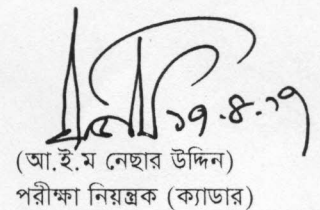 ১৭.৪.১৭
(আ.ই.ম নেছার উদ্দিন)
পরীক্ষা নিয়ন্ত্রক (ক্যাডার)